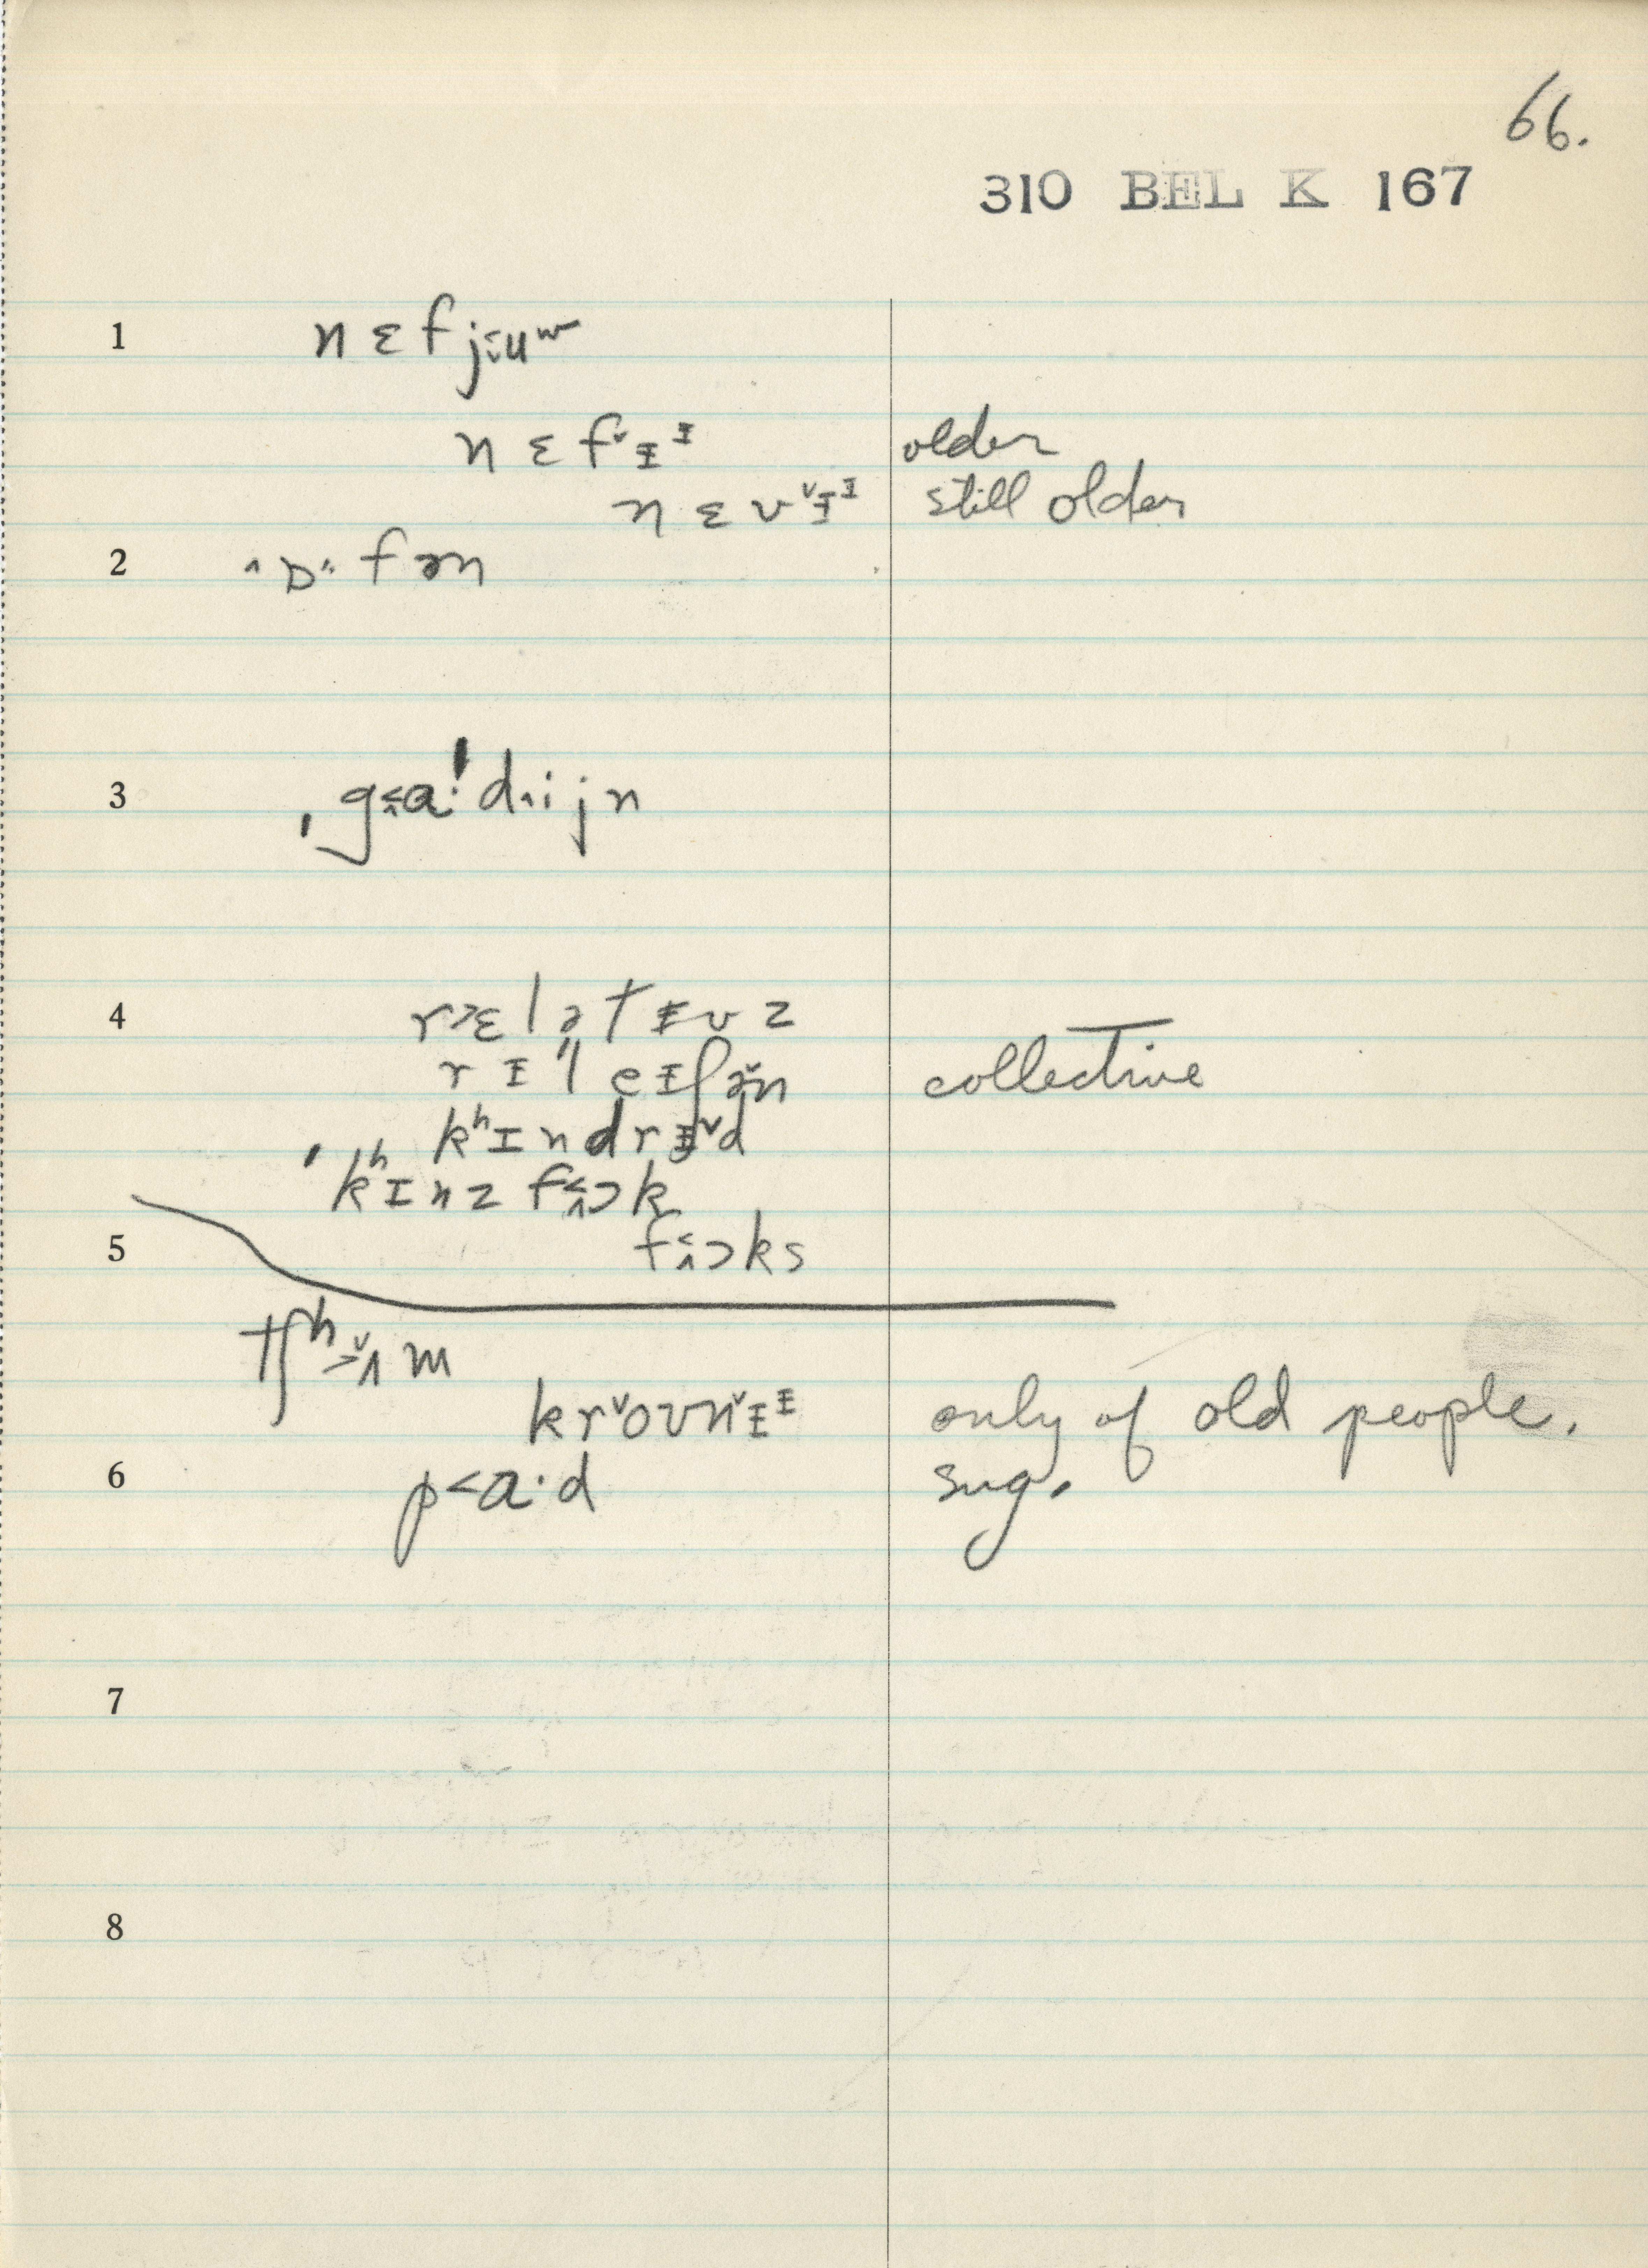 66.
310 BEL K 167
1 nɛfjʉʷ
nɛfɪᶦ older
nɛvɪᶦ still older
2 ɒfən
3 gɑ!dijn
4 rɛlətɪvz
rɪˈleɪʃən collective
kʰɪndrɪd
kʰɪnzfɔk
5 fɔks
tʃʰʌm
krovnɪᶦ only of old people.
6 pɑ·d sug.
7
8